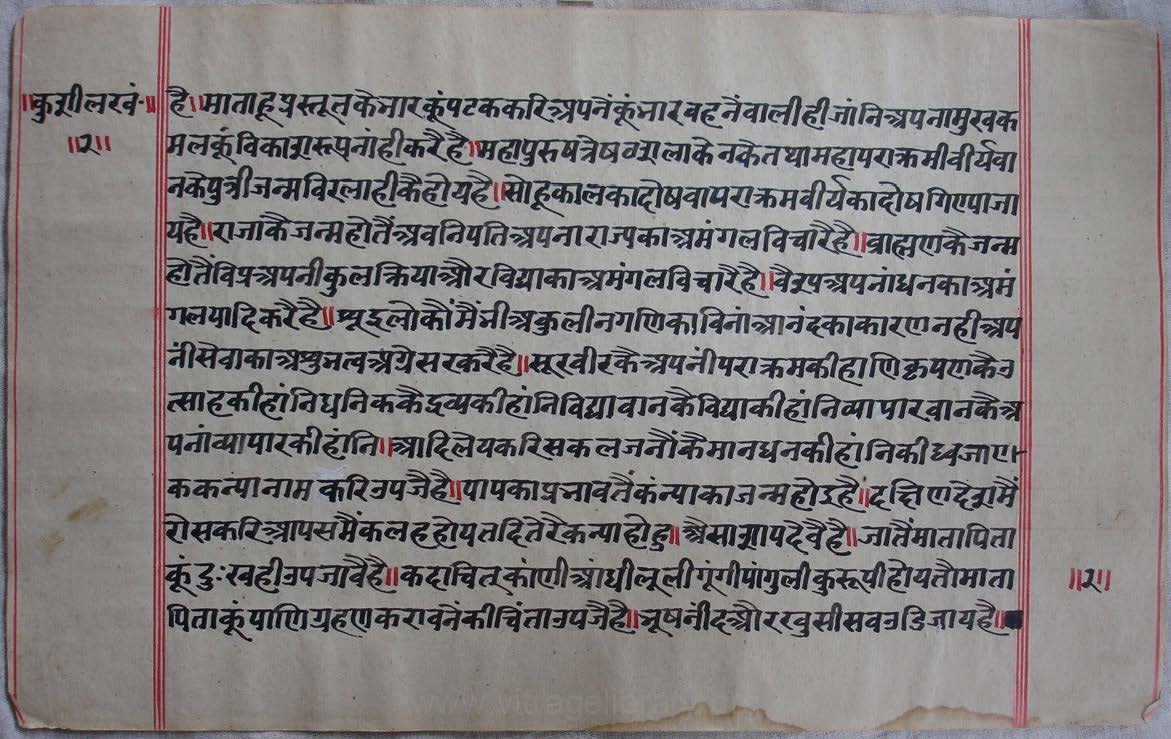 ॥कुशीलखं॰॥
॥२॥
है॥माताहूप्रस्तूतकेभारकुंपटककरिअपनैंकूंभारवहनैंवालीहीजांनिअपनामुखक
मलकूंविकाशरूपनांहीकरैहै॥महापुरुषत्रेषठशलाकेनकैतथामहापराक्रमीवीर्यवा
नकैपुत्रीजन्मविरलाहीकैहोयहै॥सोहूकालकादोषवापराक्रमवीर्यकादोषगिएपाजा
यहै॥राजांकैजन्महोतैंअवनिपतिअपनाराज्यकाअमंगलविचारैहै॥ब्राह्मणकैजन्म
होतैंविप्रअपनीकुलक्रियाऔरविद्याकाअमंगलविचारैहै॥वैश्यपअपनांधनकाअमं
गलयादिकरैहै॥शूद्रलोकौंमैंभीअकुलीनगणिकाविनांआनंदकाकारणनहीअप
नींसेवाकाअशुभत्वअग्रेसरकरैहै॥सूरवीरकैअपनींपराक्रमकीहाणिकृपणकैउ
त्साहकीहांनिधनिककैद्रव्यकीहांनिविद्यावानकैविद्याकीहांनिव्यापारवानकैअ
पनांव्यापारकीहांनि॥आदिलेयकरिसकलजनौंकैमानधनकीहांनिकीध्वजाए
ककन्यानाम करिउपजैहै॥पापकाप्रभावतैंकंन्याकाजन्महोइहै॥दक्षिणदेशमैं
रोसकरिआपसमैंकलहहोयतदितेरैकन्याहोहु॥अैसाशापदेवैहै॥जातैंमातापिता
कूंदुःखहीउपजावैहै॥कदाचित्कांणीआंधीलूलीगूंगीपांगुलीकुरूपीहोयतौमाता
पिताकूंपाणिग्रहणकरावनैंकीचिंताउपजैहै॥भूषनींदऔरखुसीसवउडिजायहै॥
॥२॥